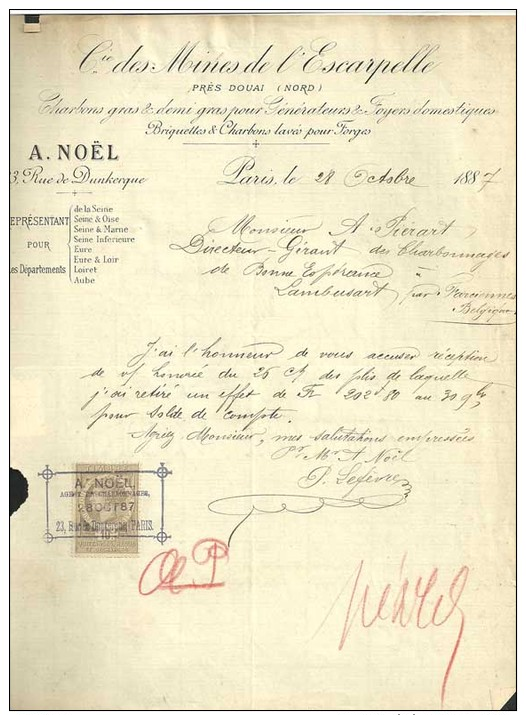 Cie des Mines de l'Escarpelle
PRÈS DOUAI (NORD)
Charbons gras & demi gras pour Générateurs & Foyers domestiques
Briquettes & Charbons lavés pour Forges
A. NOËL
3, Rue de Dunkerque
Paris, le 28 Octobre 1887
REPRÉSENTANT
POUR
Les Départements
de la Seine
Seine & Oise
Seine & Marne
Seine Inférieure
Eure
Eure & Loir
Loiret
Aube
Monsieur A. Piérart
Directeur-Gérant des Charbonnages
de Bonne Espérance à
Lambusart par Farciennes
Belgique
J'ai l'honneur de vous accuser réception
de v/ honorée du 26 ct des plis de laquelle
j'ai retiré un effet de Fr 202 80 au 30 9bre
pour solde de compte.
Agréez Monsieur, mes salutations empressées
Pr. Mr A Noël
P. Lefèvre
A. NOËL,
28 OCT 87
23, Rue de Dunkerque, PARIS.